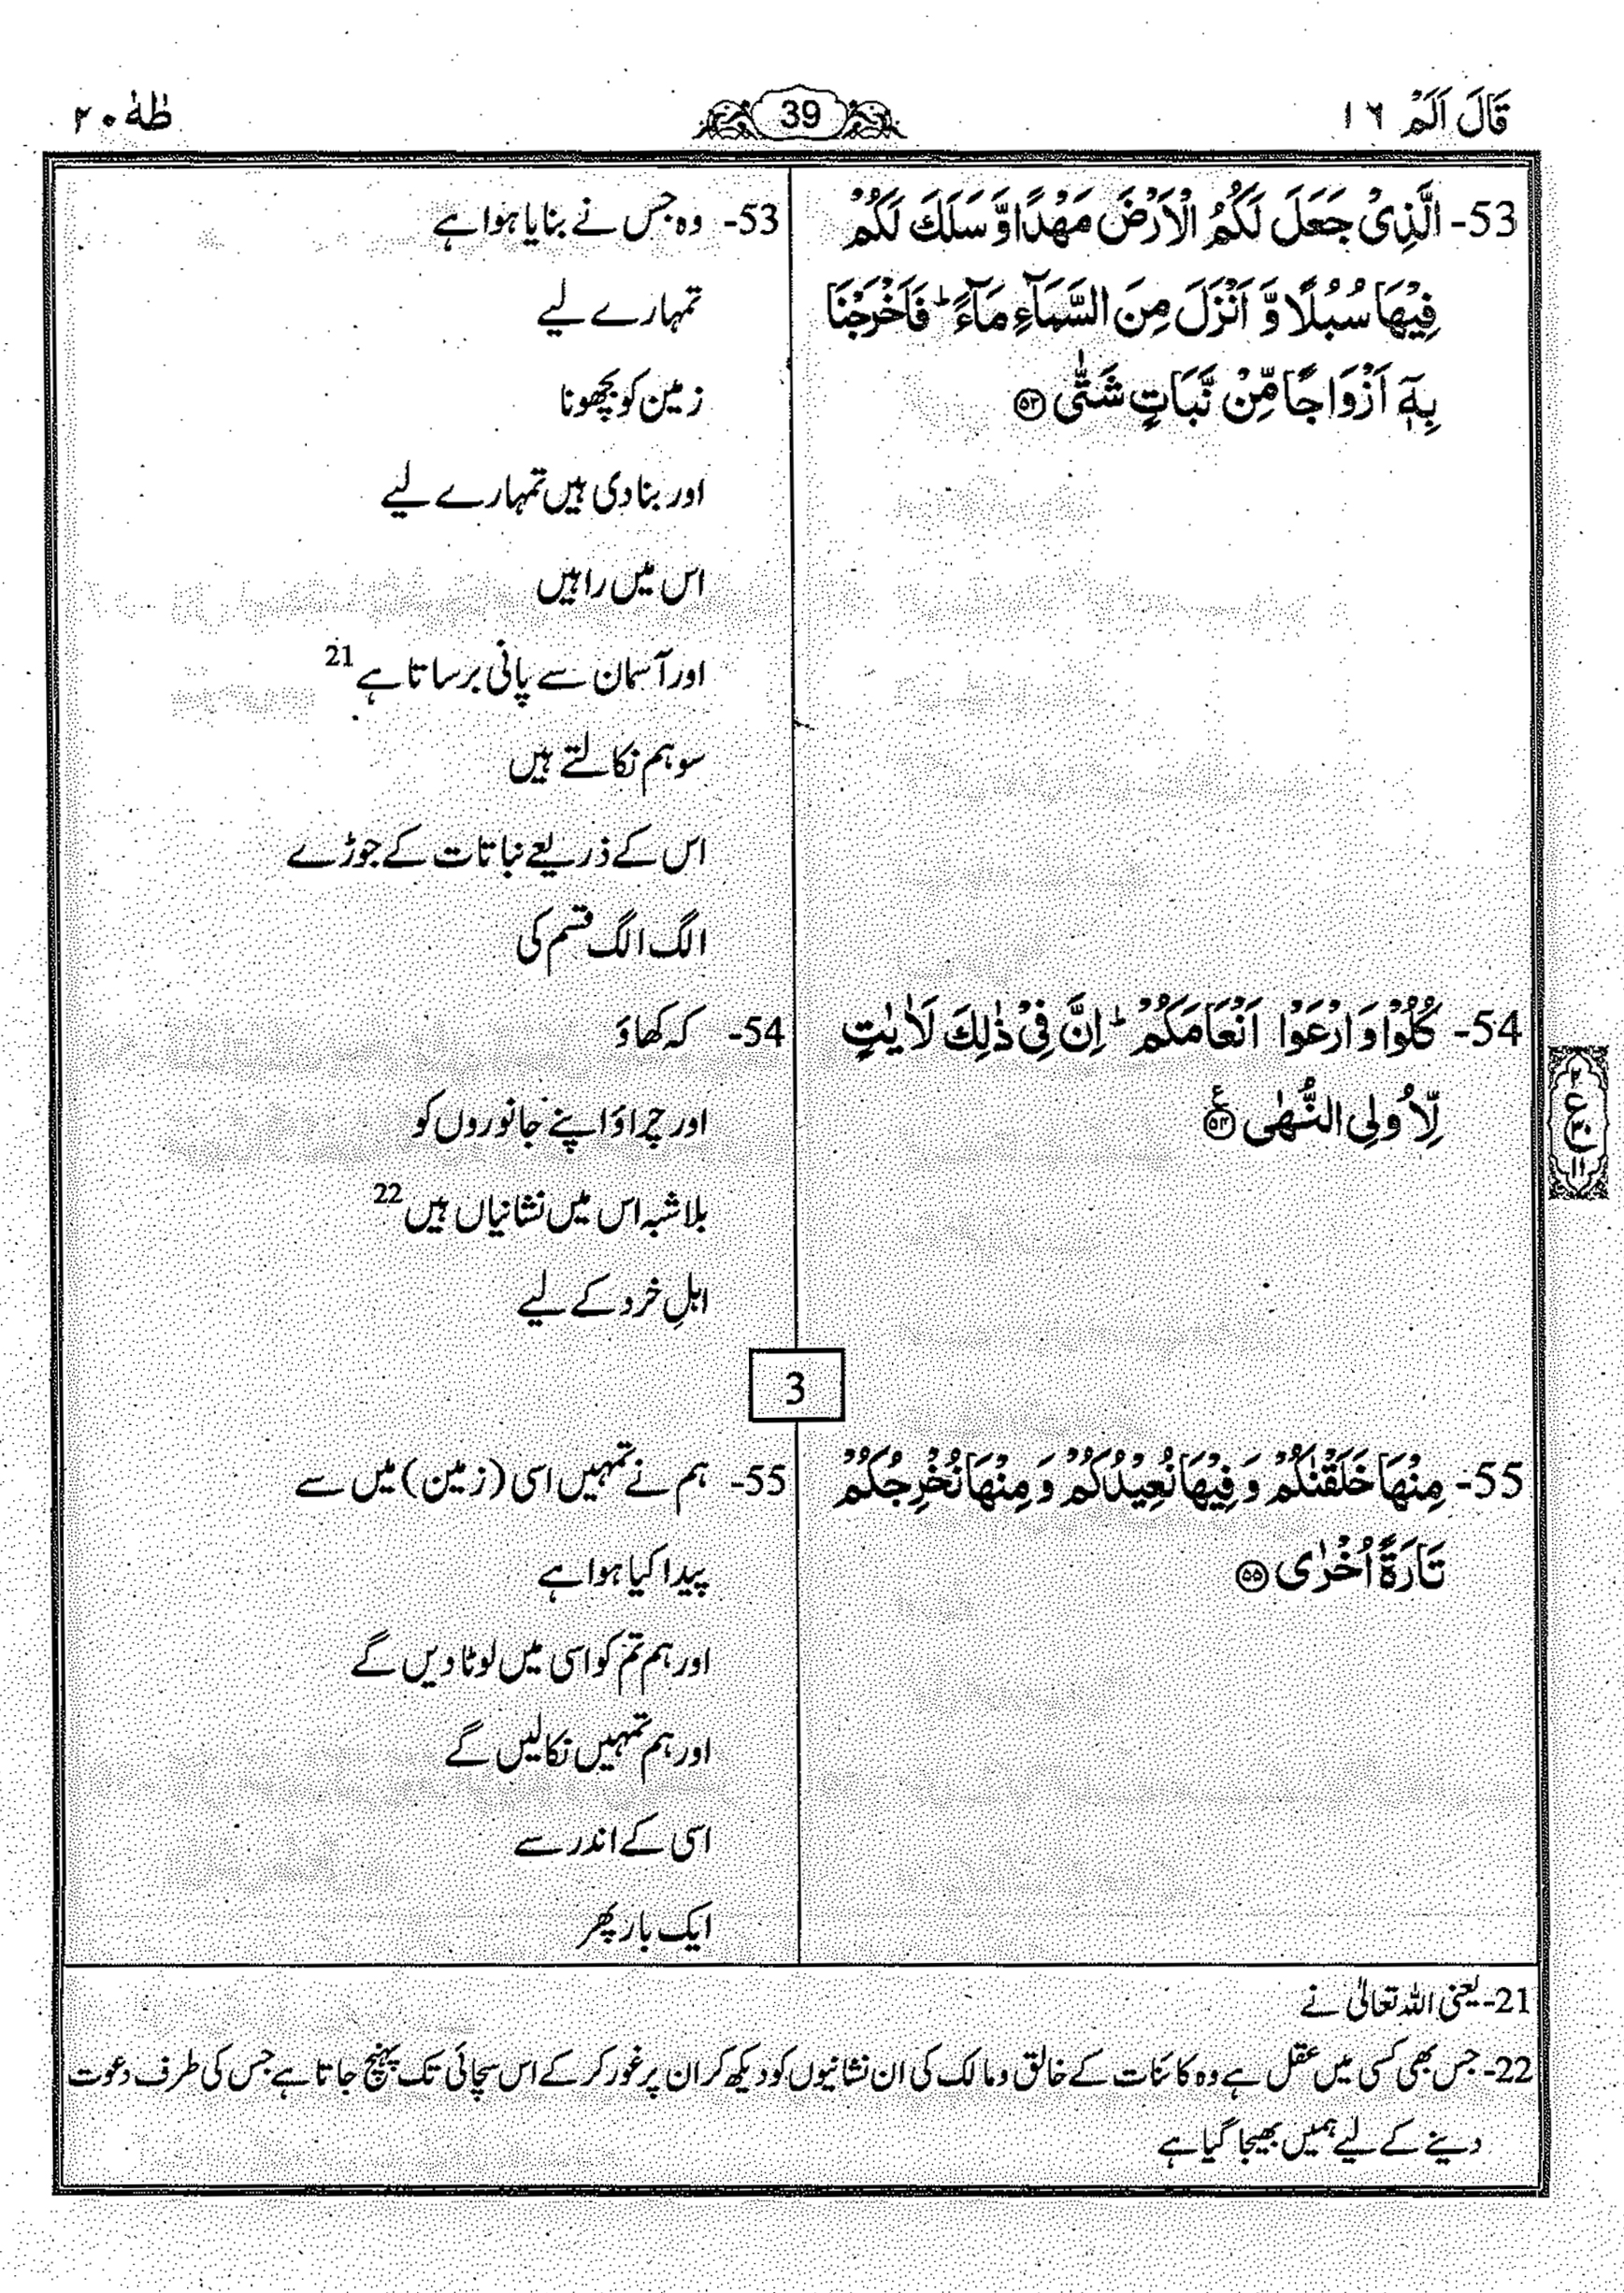 قَالَ اَلَمْ ١٦
39
طٰهٰ ٢٠
53- الَّذِیْ جَعَلَ لَكُمُ الْاَرْضَ مَهْدًا وَّ سَلَكَ لَكُمْ
فِیْهَا سُبُلًا وَّ اَنْزَلَ مِنَ السَّمَآءِ مَآءً ؕ فَاَخْرَجْنَا
بِهٖۤ اَزْوَاجًا مِّنْ نَّبَاتٍ شَتّٰی ﴿۵۳﴾
53- وہ جس نے بنایا ہوا ہے
تمہارے لیے
زمین کو بچھونا
اور بنا دی ہیں تمہارے لیے
اس میں راہیں
اور آسمان سے پانی برساتا ہے 21
سو ہم نکالتے ہیں
اس کے ذریعے نباتات کے جوڑے
الگ الگ قسم کی
54- كُلُوْا وَ ارْعَوْا اَنْعَامَكُمْ ؕ اِنَّ فِیْ ذٰلِكَ لَاٰیٰتٍ
لِّاُولِی النُّهٰی ﴿۵۴﴾ ع
٢
ع
١١
54- کہ کھاؤ
اور چراؤ اپنے جانوروں کو
بلاشبہ اس میں نشانیاں ہیں 22
اہلِ خرد کے لیے
3
55- مِنْهَا خَلَقْنٰكُمْ وَ فِیْهَا نُعِیْدُكُمْ وَ مِنْهَا نُخْرِجُكُمْ
تَارَةً اُخْرٰی ﴿۵۵﴾
55- ہم نے تمہیں اسی (زمین) میں سے
پیدا کیا ہوا ہے
اور ہم تم کو اسی میں لوٹا دیں گے
اور ہم تمہیں نکالیں گے
اسی کے اندر سے
ایک بار پھر
21- یعنی اللہ تعالیٰ نے
22- جس بھی کسی میں عقل ہے وہ کائنات کے خالق و مالک کی ان نشانیوں کو دیکھ کر ان پر غور کر کے اس سچائی تک پہنچ جاتا ہے جس کی طرف دعوت
دینے کے لیے ہمیں بھیجا گیا ہے